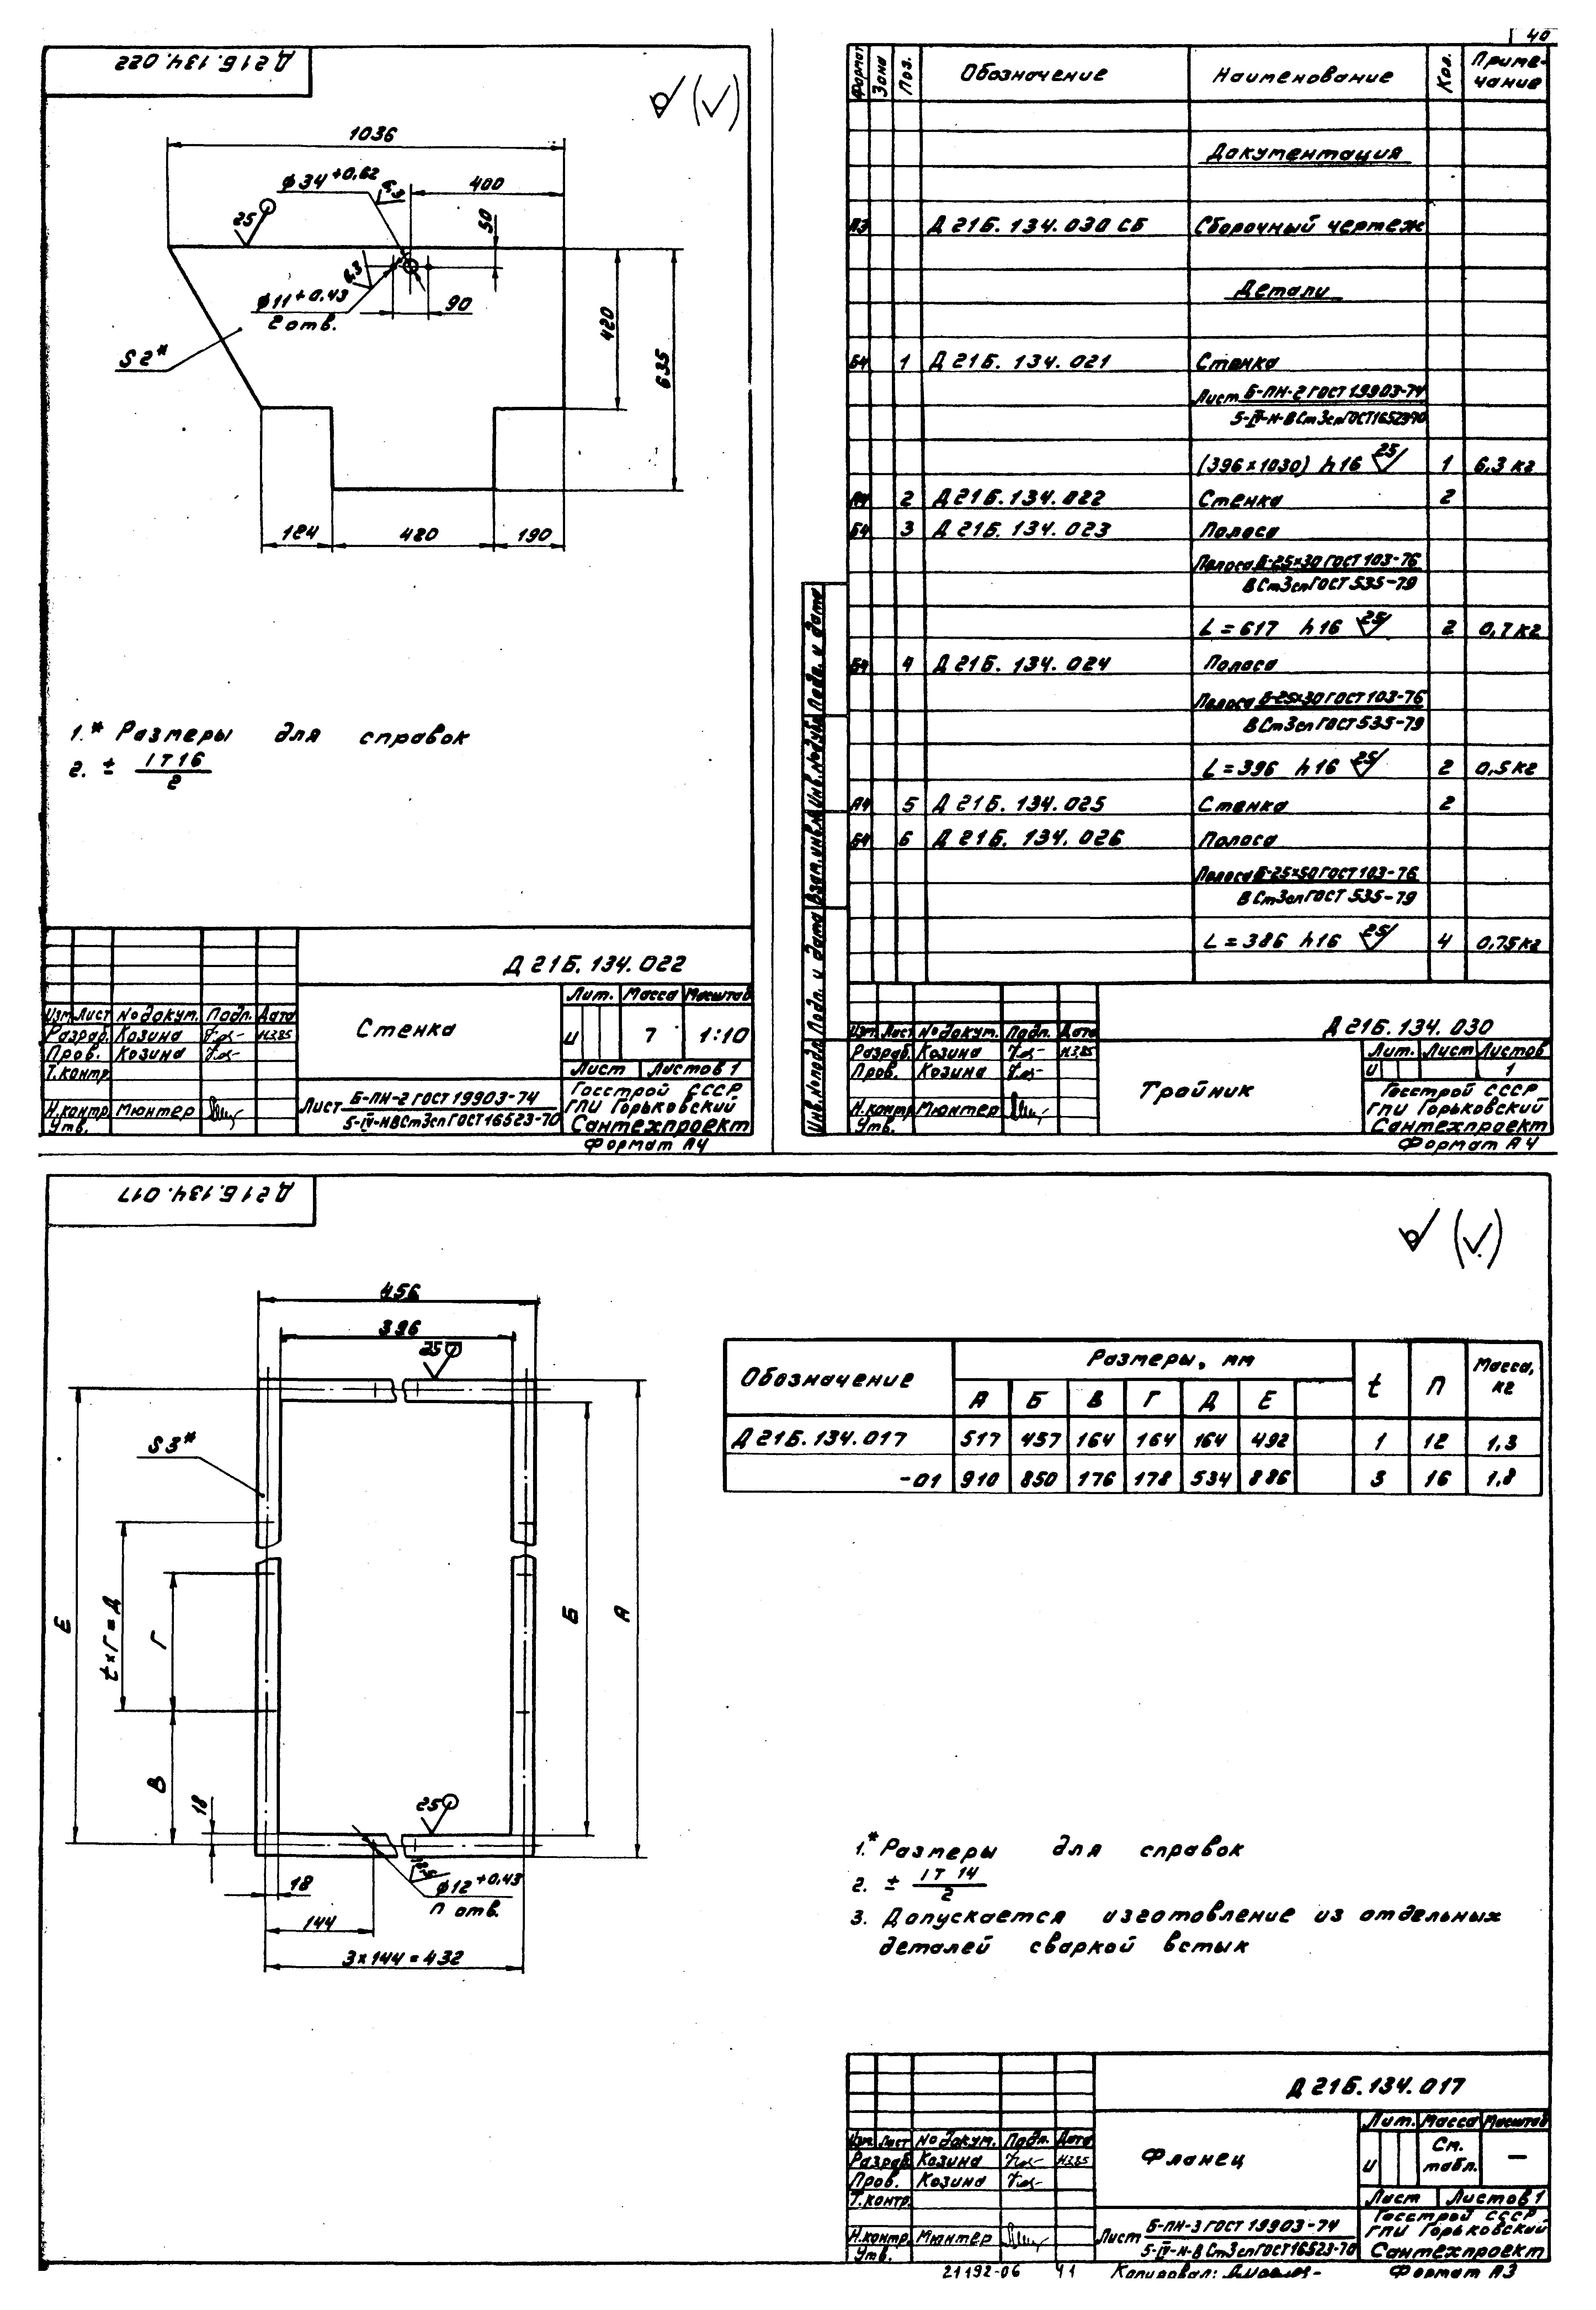 Д 21Б. 134. 022
1036
Ø34 +0,62
6,3
400
50
25
6,3
Ø11 +0,43
2 отв.
90
S 2*
420
635
124
420
190
1.* Размеры для справок
2. ± IT16
2
Д 21Б. 134. 022
Изм. Лист № докум. Подп. Дата
Разраб. Козина
Пров. Козина
Т. контр.
Н. контр. Мюнтер
Утв.
Стенка
Лит. Масса Масштаб
И 7 1:10
Лист Листов 1
Лист Б-ПН-2 ГОСТ 19903-74
5-IV-Н ВСт3сп ГОСТ 16523-70
Госстрой СССР
ГПИ Горьковский
Сантехпроект
Формат А4
40
Формат Зона Поз. Обозначение Наименование Кол. Примечание
Документация
А3 Д 21Б. 134. 030 СБ Сборочный чертеж
Детали
Б4 1 Д 21Б. 134. 021 Стенка
Лист Б-ПН-2 ГОСТ 19903-74
5-IV-Н-ВСт3сп ГОСТ 16523-70
(396×1030) h16 25 1 6,3 кг
А4 2 Д 21Б. 134. 022 Стенка 2
Б4 3 Д 21Б. 134. 023 Полоса
Полоса Б-25×30 ГОСТ 103-76
ВСт3сп ГОСТ 535-79
L = 617 h16 25 2 0,7 кг
Б4 4 Д 21Б. 134. 024 Полоса
Полоса Б-25×30 ГОСТ 103-76
ВСт3сп ГОСТ 535-79
L = 396 h16 25 2 0,5 кг
А4 5 Д 21Б. 134. 025 Стенка 2
Б4 6 Д 21Б. 134. 026 Полоса
Полоса Б-25×50 ГОСТ 103-76
ВСт3сп ГОСТ 535-79
L = 386 h16 25 4 0,75 кг
Инв. № подл. Подп. и дата Взам. инв. № Инв. № дубл. Подп. и дата
Д 21Б. 134. 030
Изм. Лист № докум. Подп. Дата
Разраб. Козина
Пров. Козина
Н. контр. Мюнтер
Утв.
Тройник
Лит. Лист Листов
И 1
Госстрой СССР
ГПИ Горьковский
Сантехпроект
Формат А4
Д 21Б. 134. 017
456
396
25
S 3*
Е
t×Г=Д
Г
В
Б
А
18
25
18
Ø12 +0,43
n отв.
144
3×144=432
Обозначение Размеры, мм t n Масса, кг
А Б В Г Д Е
Д 21Б. 134. 017 517 457 164 164 164 492 1 12 1,3
-01 910 850 176 178 534 886 3 16 1,8
1.* Размеры для справок
2. ± IT 14
2
3. Допускается изготовление из отдельных
деталей сваркой встык
Д 21Б. 134. 017
Изм. Лист № докум. Подп. Дата
Разраб. Козина
Пров. Козина
Т. контр.
Н. контр. Мюнтер
Утв.
Фланец
Лит. Масса Масштаб
И См. табл. —
Лист Листов 1
Лист Б-ПН-3 ГОСТ 19903-74
5-IV-Н-ВСт3сп ГОСТ 16523-70
Госстрой СССР
ГПИ Горьковский
Сантехпроект
21192-06 41
Копировал:
Формат А3